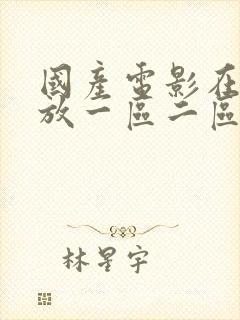 國產電影在
放一區二區
林星宇